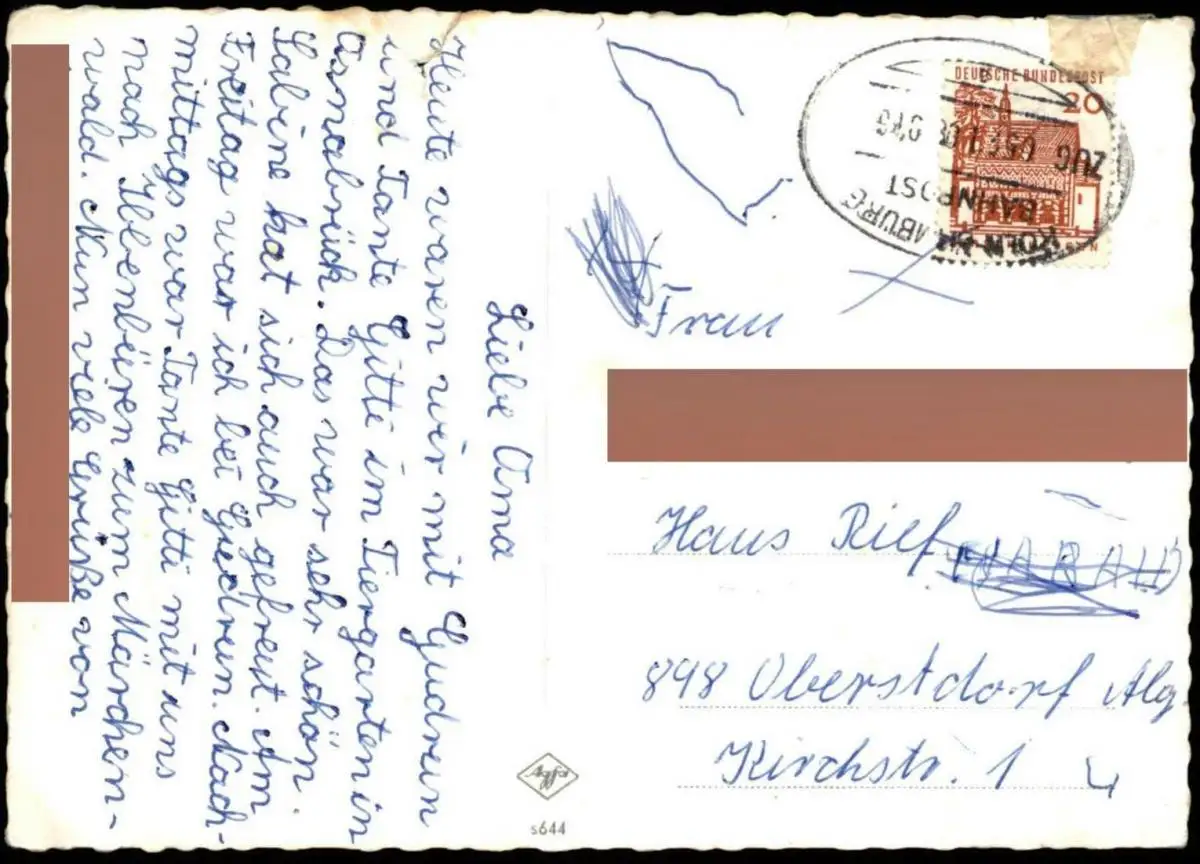 Liebe Oma
Heute waren wir mit Gudrun
und Tante Gitte im Tiergarten in
Osnabrück. Das war sehr schön.
Sabine hat sich auch gefreut. Am
Freitag war ich bei Gudrun. Nach-
mittags war Tante Gitti mit uns
nach Ibbenbüren zum Märchen-
wald. Nun viele Grüße von
DEUTSCHE BUNDESPOST
20
KÖLN
BAHNPOST
ZUG
Frau
Haus Rief
898 Oberstdorf Alg.
Kirchstr. 1
s644